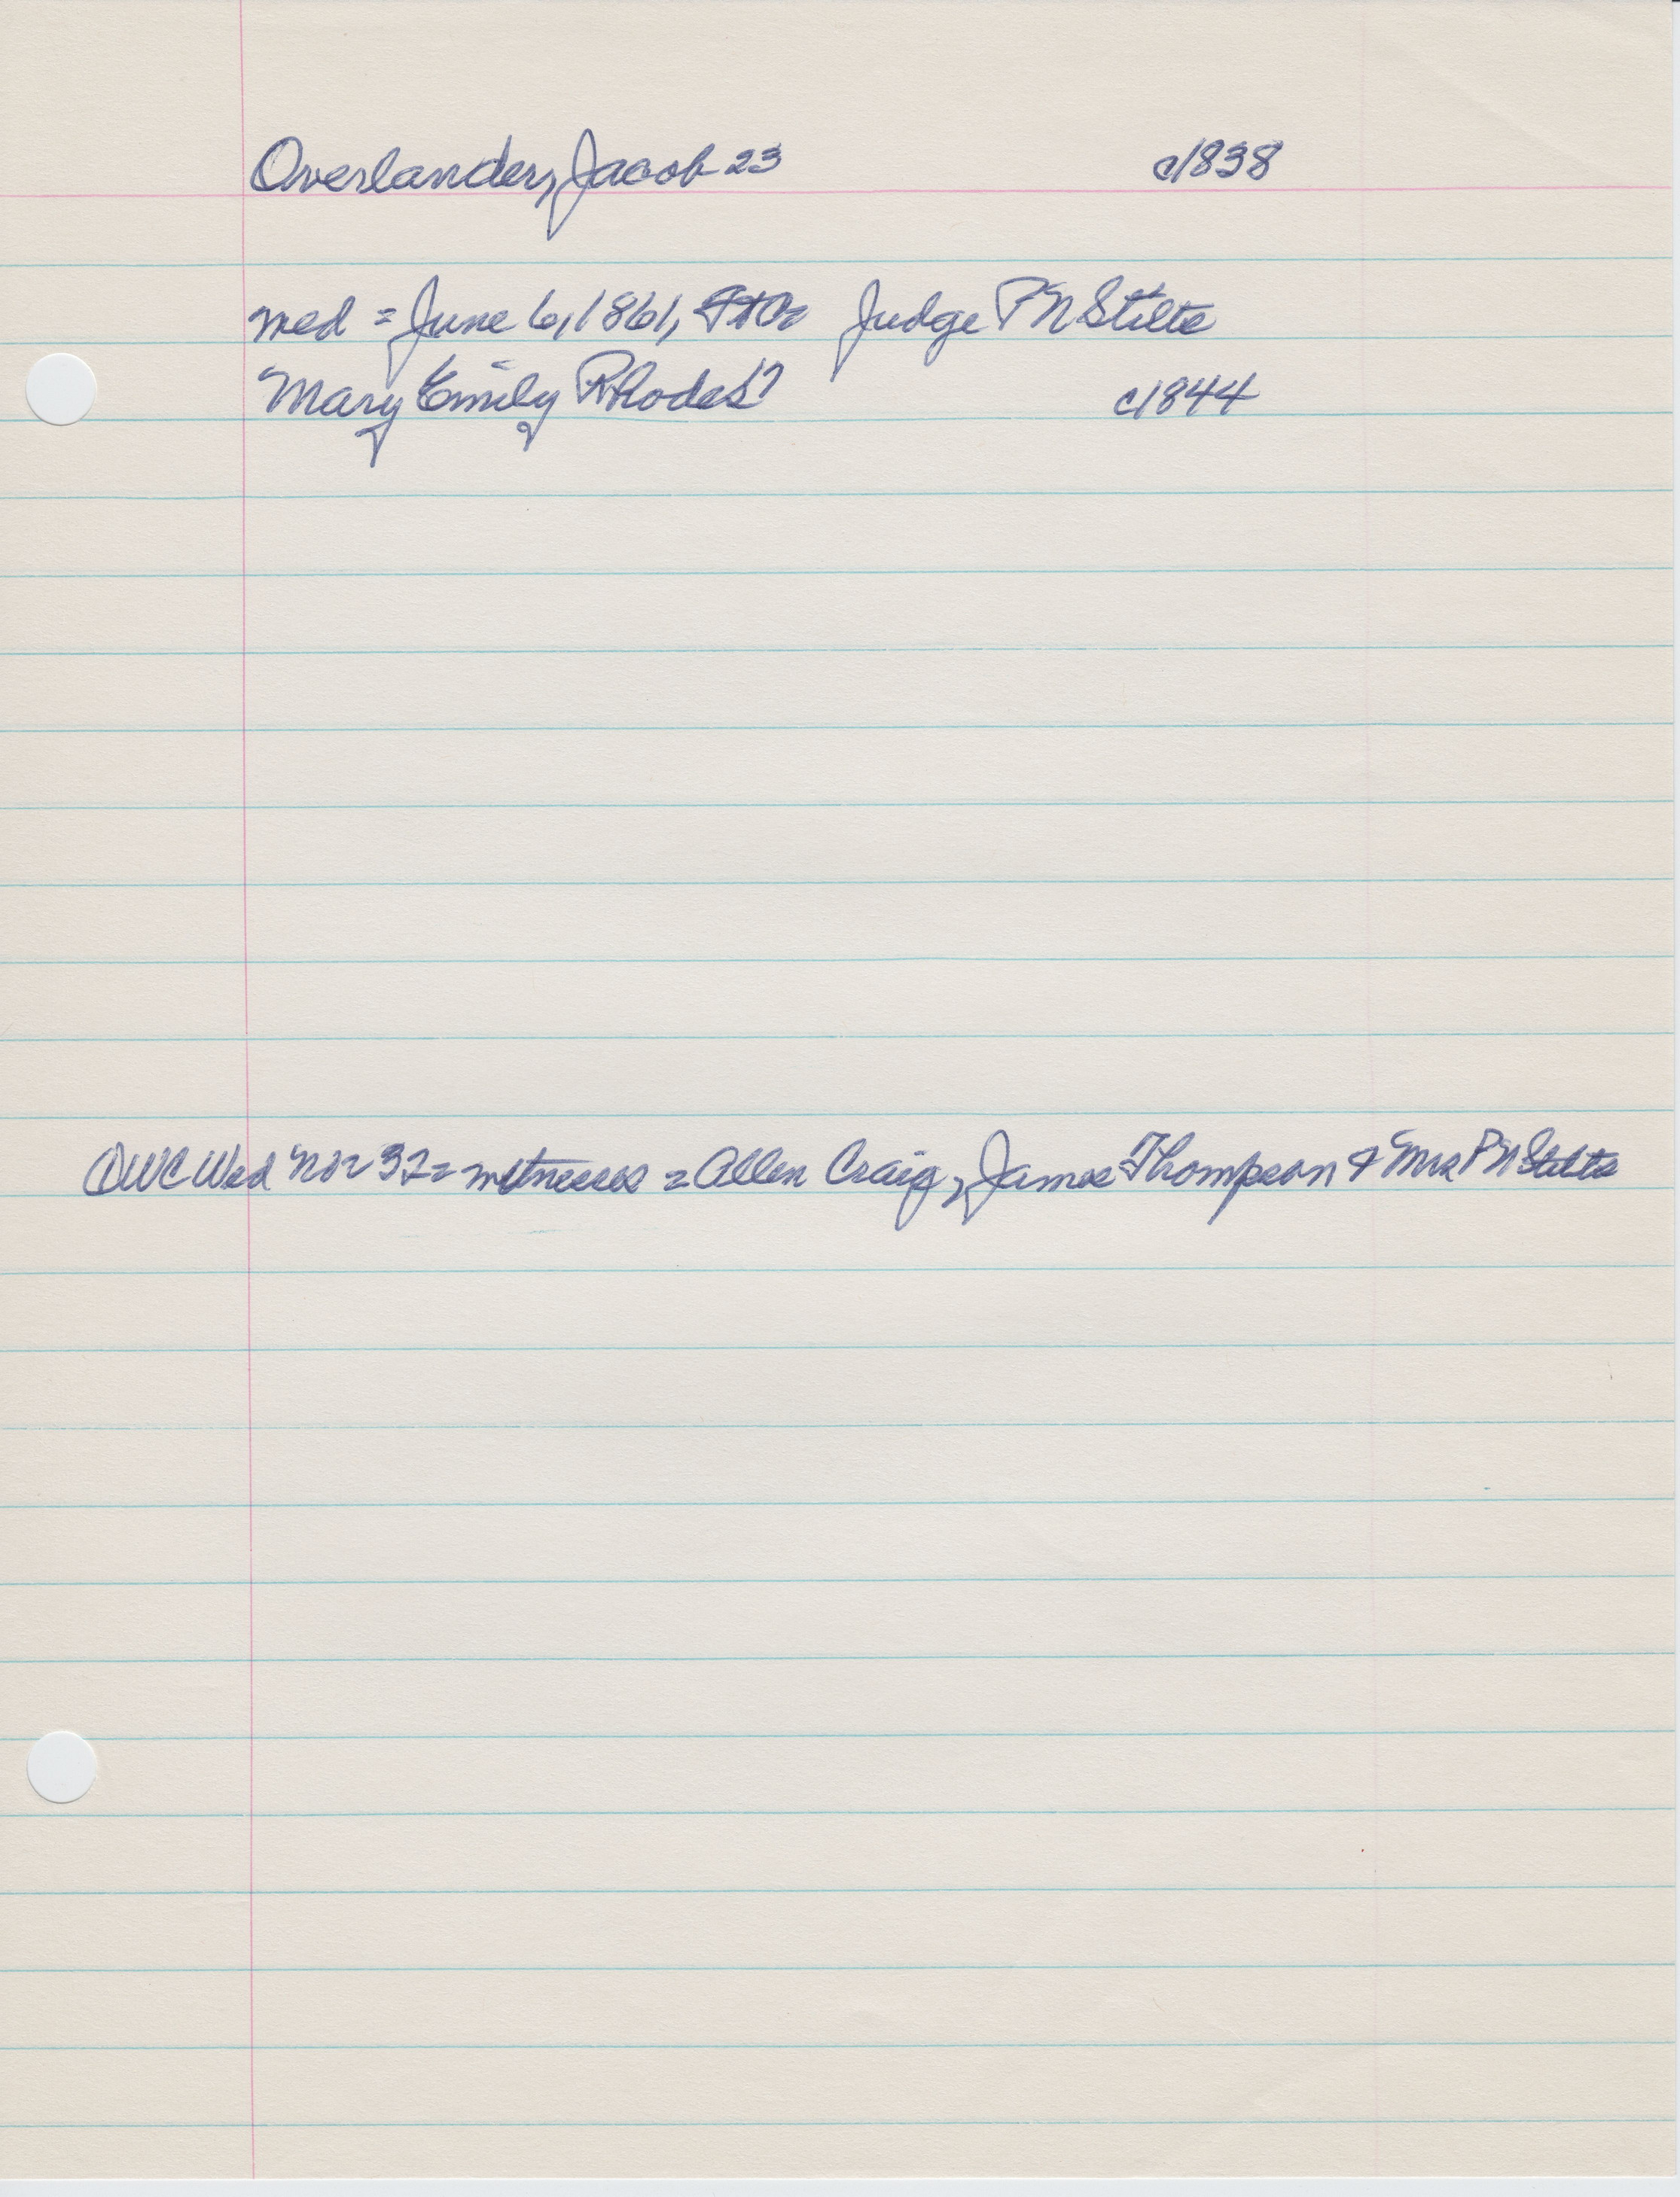 Overlander, Jacob 23 c1838
med = June 6, 1861, Judge P N Stilts
Mary Emily Rhodes 17 c1844
OWC Wed No 32 = witnesses = Allen Craig, James Thompson & Mrs P N Stilts